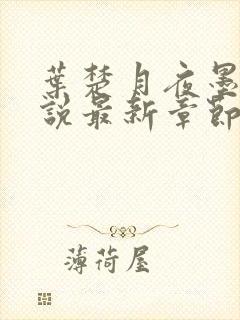 葉楚月夜墨
說最新章節
薄荷屋